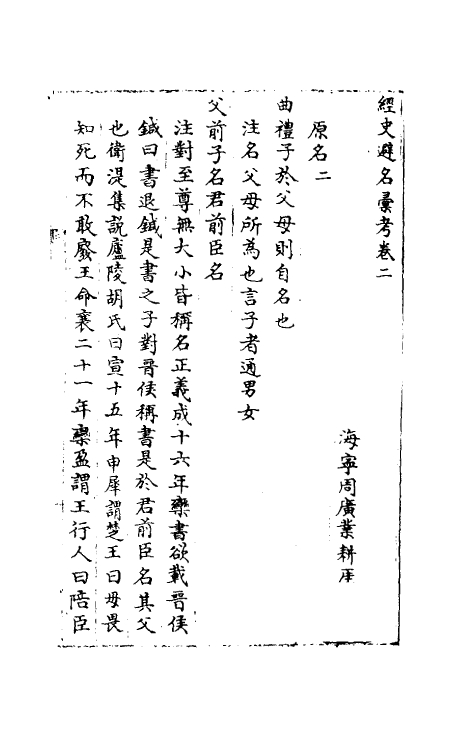 經史避名彙考卷二
海寧周廣業耕厓
原名二
曲禮子於父母則自名也
注名父母所為也言子者通男女
父前子名君前臣名
注對至尊無大小皆稱名正義成十六年欒書欲載晉侯
鍼曰書退鍼是書之子對晉侯稱書是於君前臣名其父
也衛湜集說廬陵胡氏曰宣十五年申犀謂楚王曰毋畏
知死而不敢廢王命襄二十一年欒盈謂王行人曰陪臣